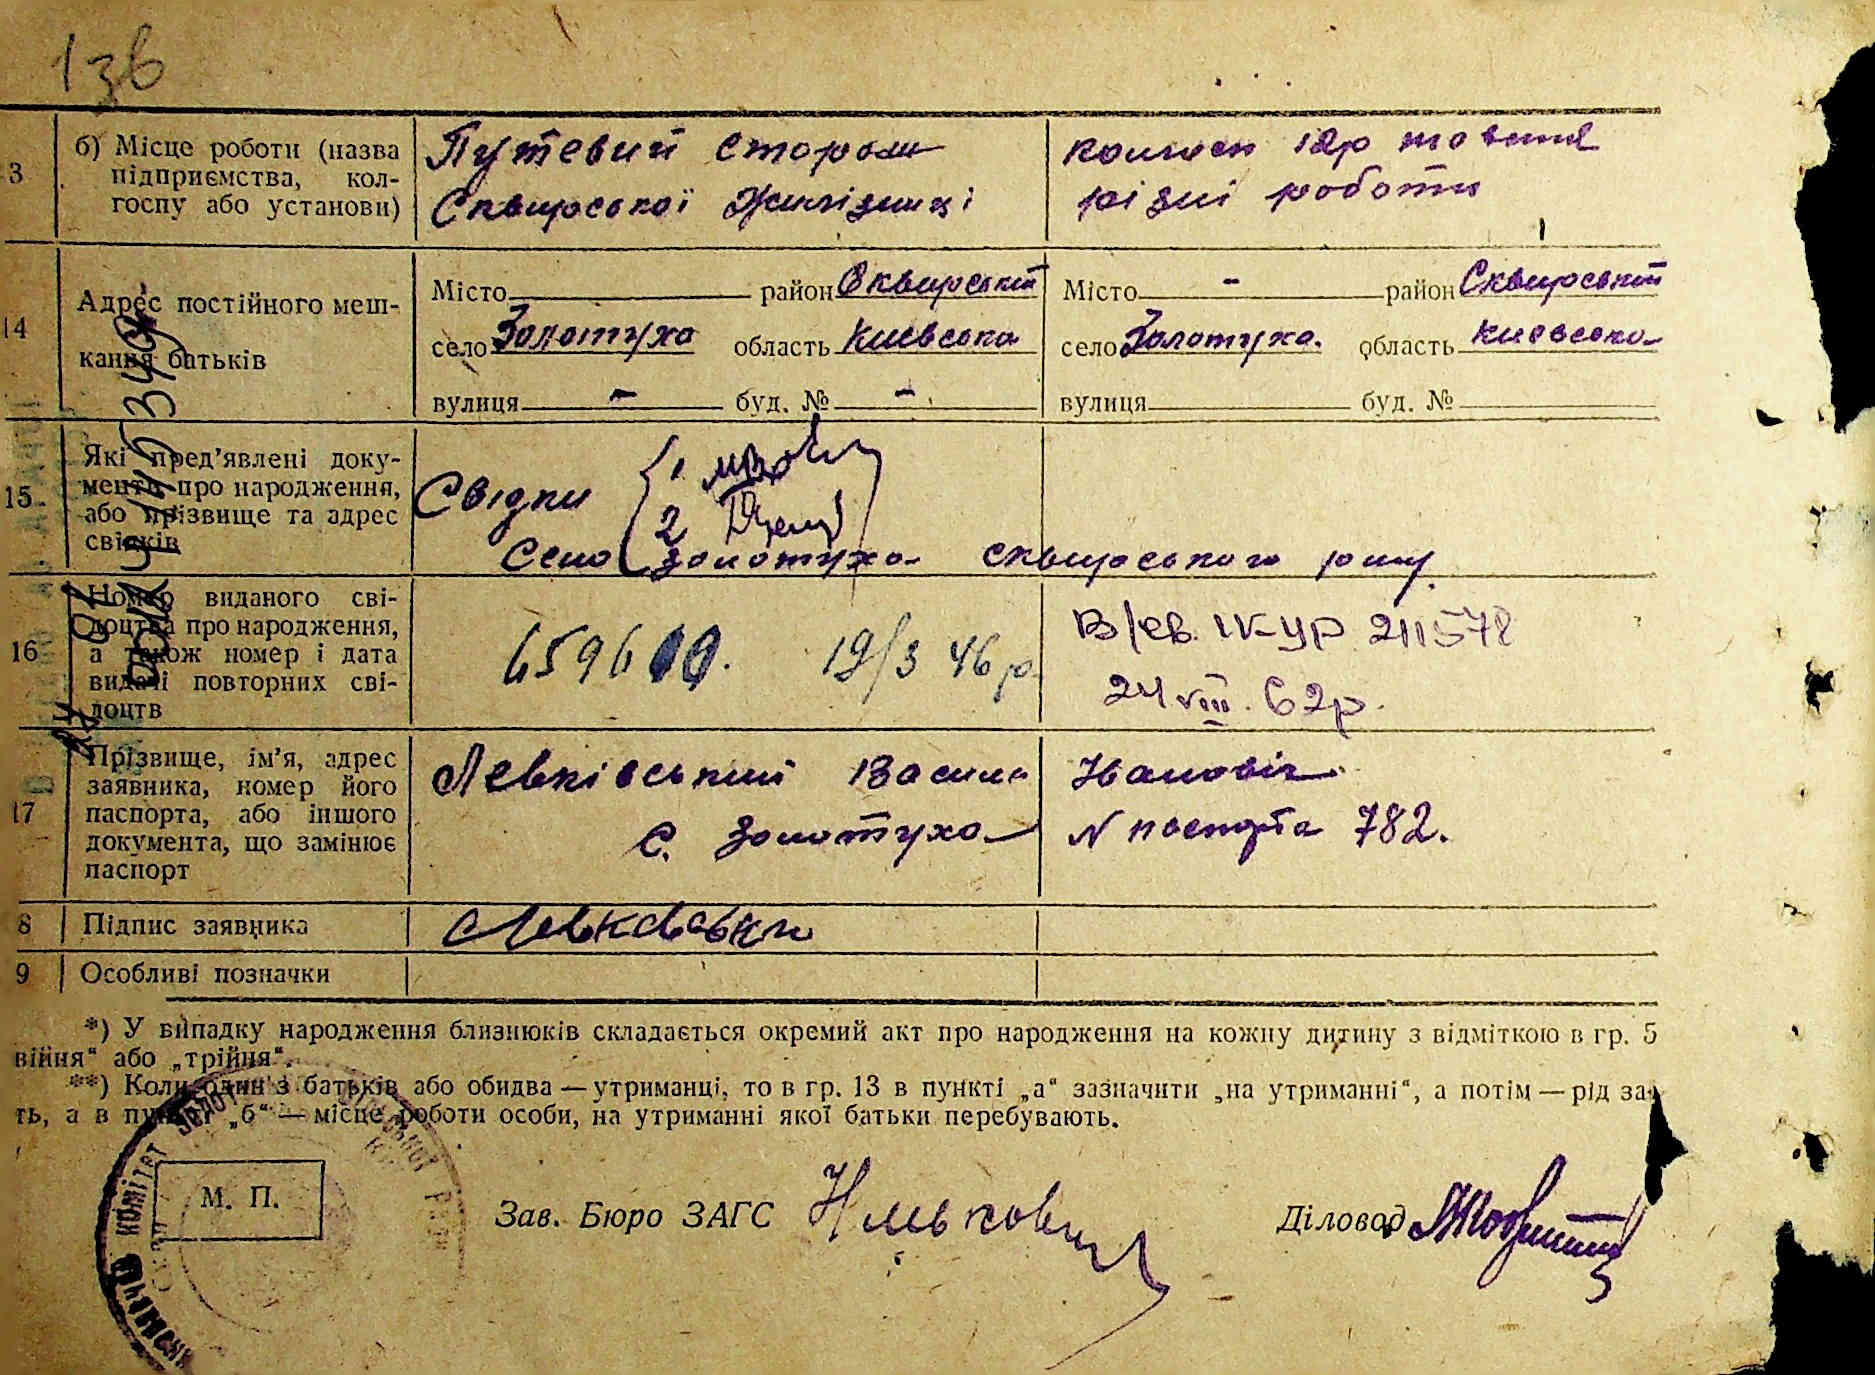 13б
3 б) Місце роботи (назва підприємства, кол-госпу або установи)
Путевий сторож
Сквирської Желізниці
колгосп 12р жовтня
різні роботи
14 Адрес постійного меш-
кання батьків
Місто район Сквирський
село Золотуха область Киевська
вулиця - буд. № -
Місто - район Сквирський
село Золотуха. область Киевська
вулиця буд. №
15. Які пред'явлені доку-
менти про народження,
або прізвище та адрес
свідків
Свідки 1
2
Село Золотуха Сквирського р-ну.
16 Номер виданого сві-
доцтва про народження,
а також номер і дата
видачі повторних сві-
доцтв
19/3 46 р.
В/св. IV-УР 211578
24 VIII. 62р.
17 Прізвище, ім'я, адрес
заявника, номер його
паспорта, або іншого
документа, що замінює
паспорт
Левківський Василь Іванович
с. Золотуха N паспорта 782.
8 Підпис заявника
9 Особливі позначки
*) У випадку народження близнюків складається окремий акт про народження на кожну дитину з відміткою в гр. 5
війня" або „трійня".
**) Коли один з батьків або обидва — утриманці, то в гр. 13 в пункті „а" зазначити „на утриманні", а потім — рід за-
ть, а в пункті „б" — місце роботи особи, на утриманні якої батьки перебувають.
М. П.
Зав. Бюро ЗАГС
Діловод